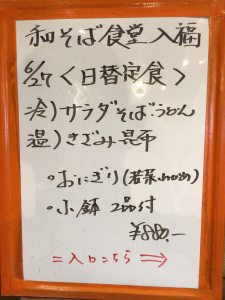 和そば食堂 入福
6/27 <日替定食>
冷) サラダそば・うどん
温) きざみ昆布
。おにぎり(若菜わかめ)
。小鉢 2品付
¥880.-
=入口こちら⇒